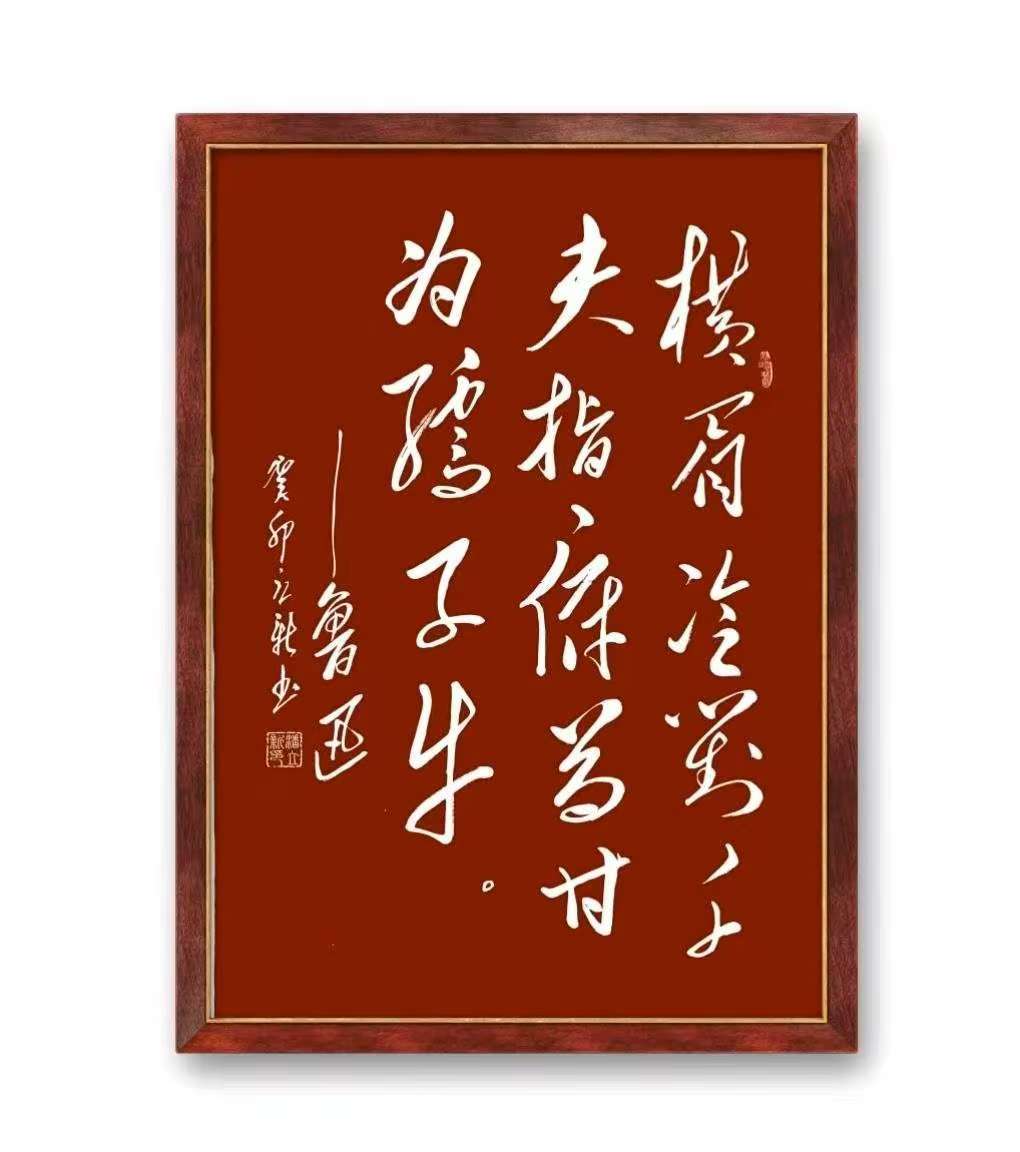 横眉冷對千
夫指俯首甘
为孺子牛。
——鲁迅
癸卯立新书